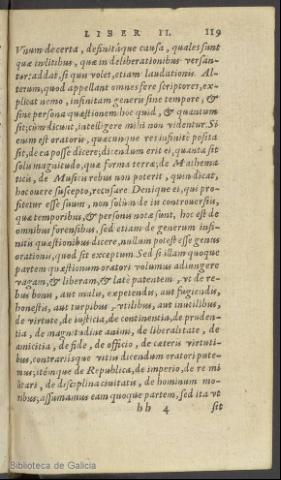 LIBER II. 119
Vnum de certa, definitáque causa, quales sunt
quæ in litibus, quæ in deliberationibus versan-
tur: addat, si quis volet, etiam laudationis. Al-
terum, quod appellant omnes fere scriptores, ex-
plicat nemo, infinitam generis sine tempore, &
sine persona quæstionem: hoc quid, & quantum
sit; cùm dicunt, intelligere mihi non videntur. Si
enim est oratoris, quæcunque res infinitè posita
sit, de ea posse dicere; dicendum erit ei, quanta sit
solis magnitudo, quæ forma terræ; de Mathema
ticis, de Musicis rebus non poterit, quin dicat,
hoc onere suscepto, recusare. Denique ei, qui pro-
fitetur esse suum, non solùm de iis controuersiis,
quæ temporibus, & personis notæ sunt, hoc est de
omnibus forensibus, sed etiam de generum infi-
nitis quæstionibus dicere, nullum potest esse genus
orationis, quod sit exceptum. Sed si illam quoque
partem quæstionum oratori volumus adiungere
vagam, & liberam, & latè patentem, vt de re-
bus bonis, aut malis, expetendis, aut fugiendis,
honestis, aut turpibus, vtilibus, aut inutilibus,
de virtute, de iusticia, de continentia, de pruden-
tia, de magnitudine animi, de liberalitate, de
amicitia, de fide, de officio, de cæteris virtuti-
bus, contrariisque vitiis dicendum oratori pute-
mus; itémque de Republica, de imperio, de re mi
litari, de disciplina ciuitatis, de hominum mo-
ribus; assumamus eam quoque partem, sed ita vt
bb 4 sit
Biblioteca de Galicia